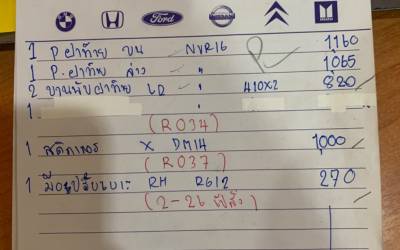 Ford NISSAN
1 P ฝาท้าย บน NVR16 1,160
1 P.ฝาท้าย ล่าง " 1,065
2 บานพับฝาท้าย LD " 410x2 820
1
(R034)
1 สติกเกอร X DM14 1,000
(R037)
1 มือ ปรับเบาะ RH RG12 270
(2-26